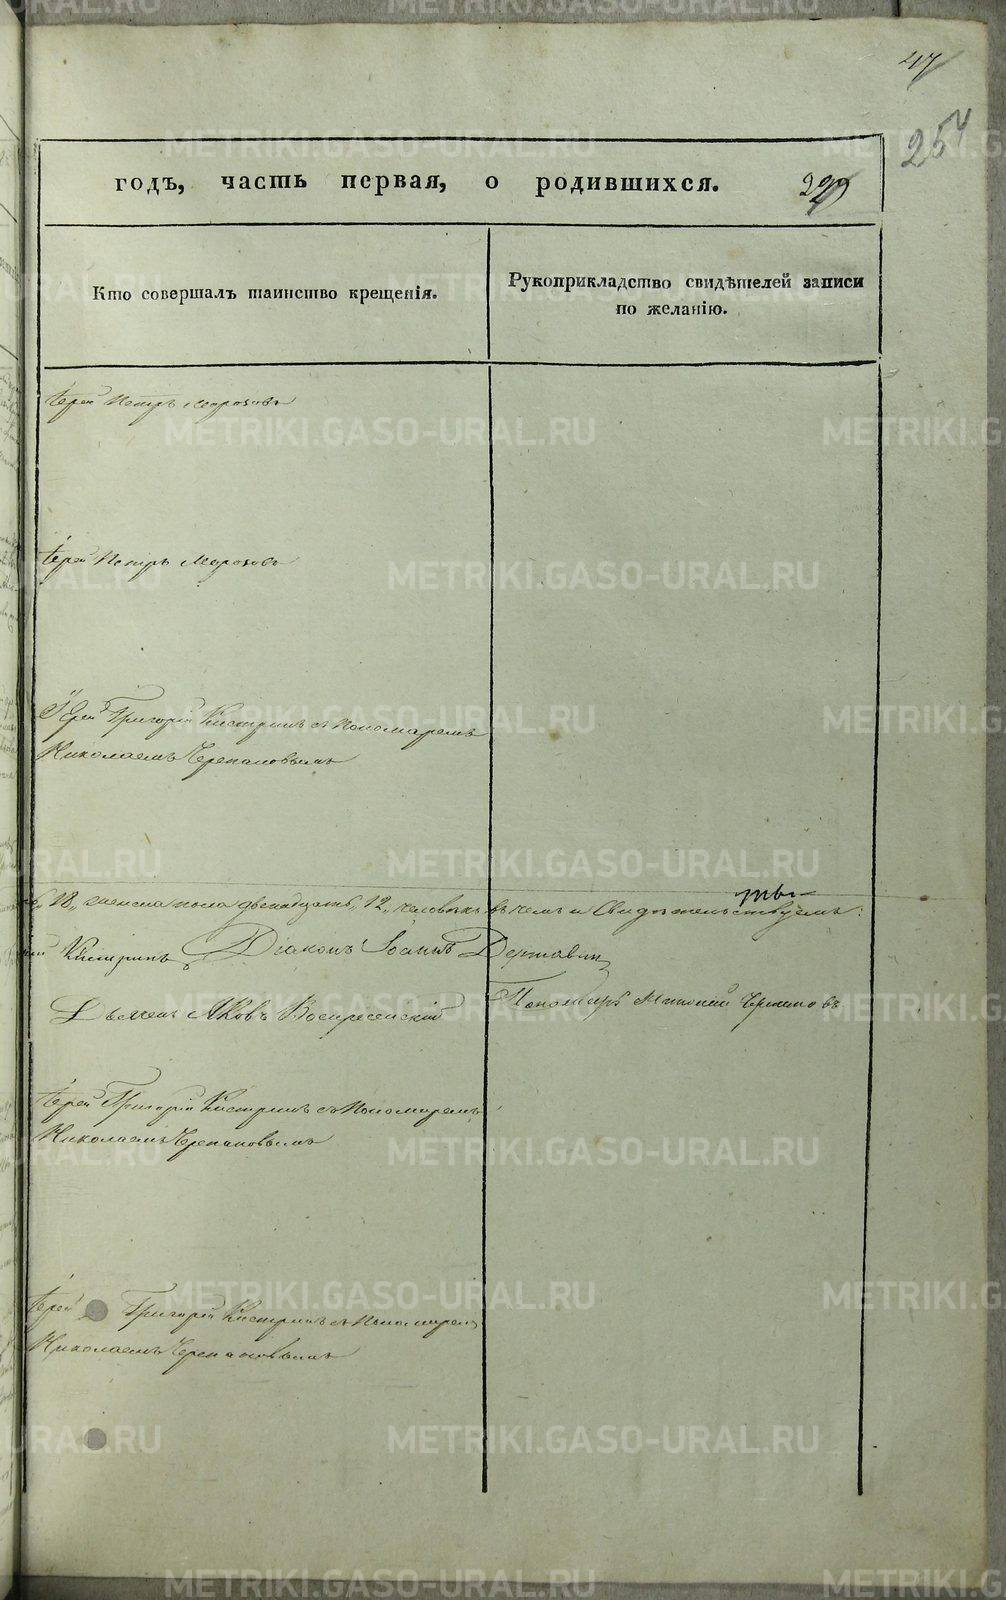 47
254
годъ, часть первая, о родившихся. 229
Кто совершалъ таинство крещенія.
Рукоприкладство свидѣтелей записи
по желанію.
Іерей Петръ Морозовъ
Іерей Петръ Морозовъ
Іерей Григорій Кистринъ съ Пономаремъ
Николаемъ Черепановымъ
18, женска пола двенадцать, 12, человекъ въ чемъ и Свидетельствуемъ:
Кистринъ Діаконъ Іоаннъ Державин
Дьячекъ Яковъ Воскресенскій
Пономарь
Іерей Григорій Кистринъ съ Пономаремъ
Николаемъ Черепановымъ
Іерей Григорій Кистринъ съ Пономаремъ
Николаемъ Черепановымъ
METRIKI.GASO-URAL.RU